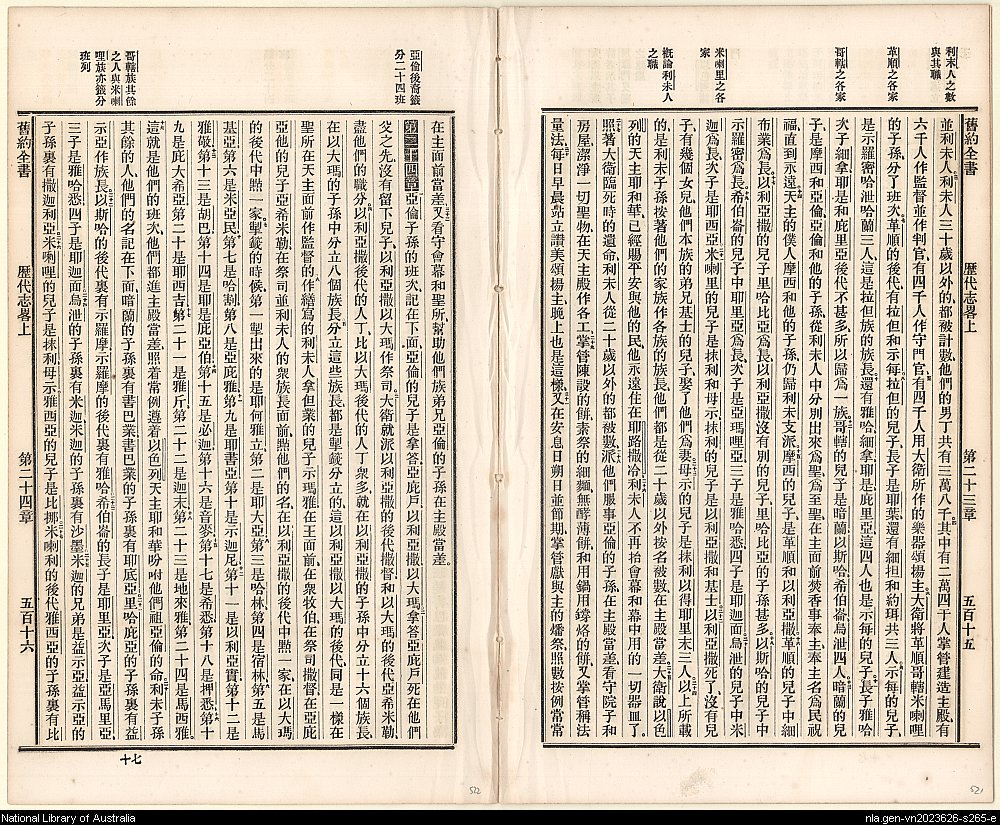 利未人之數
與其職
革順之各家
哥轄之各家
米喇里之各
家
概論利未人
之職
舊約全書
歷代志畧上
第二十三章
五百十五
並利未人利未人三十歲以外的都被計數他們的男丁共有三萬八千其中有二萬四千人掌管建造主殿有
六千人作監督並作判官有四千人作守門官有四千人用大衛所作的樂器頌揚主大衛將革順哥轄米喇哩
的子孫分了班次革順的後代有拉但和示每拉但的兒子長子是耶葉還有細担和約珥共三人示每的兒子
是示羅密哈泄哈蘭三人這是拉但族的族長還有雅哈細拿耶是庇里亞這四人也是示每的兒子長子雅哈
次子細拿耶是和庇里亞後代不甚多所以歸爲一族哥轄的兒子是暗蘭以斯哈希伯崙烏泄四人暗蘭的兒
子是摩西和亞倫亞倫和他的子孫從利未人中分別出來爲聖爲至聖在主面前焚香事奉主奉主名爲民祝
福直到永遠天主的僕人摩西和他的子孫仍歸利未支派摩西的兒子是革順和以利亞撒革順的兒子中細
布業爲長以利亞撒的兒子里哈比亞爲長以利亞撒沒有別的兒子里哈比亞的子孫甚多以斯哈的兒子中
示羅密爲長希伯崙的兒子中耶里亞爲長次子是亞瑪哩亞三子是雅哈悉四子是耶迦面烏泄的兒子中米
迦爲長次子是耶西亞米喇里的兒子是抹利和母示抹利的兒子是以利亞撒和基士以利亞撒死了沒有兒
子有幾個女兒他們本族的弟兄基士的兒子娶了他們爲妻母示的兒子是抹利以得耶里末三人以上所載
的是利未子孫按著他們的家族作各族的族長他們都是從二十歲以外按名被數在主殿當差大衛說以色
列的天主耶和華已經賜平安與他的民他永遠住在耶路撒冷利未人不再抬會幕和幕中用的一切器皿了
照著大衛臨死時的遺命利未人從二十歲以外的都被數派他們服事亞倫的子孫在主殿當差看守院子和
房屋潔淨一切聖物在天主殿作各工掌管陳設的餅素祭的細麵無酵薄餅和用鍋用盤烙的餅又掌管稱法
量法每日早晨站立讚美頌揚主晚上也是這樣又在安息日朔日並節期掌管獻與主的燔祭照數按例常常
亞倫後裔籤
分二十四班
哥轄族其餘
之人與米喇
哩族亦籤分
班列
在主面前當差又看守會幕和聖所幫助他們族弟兄亞倫的子孫在主殿當差
第二十四章亞倫子孫的班次記在下面亞倫的兒子是拿答亞庇戶以利亞撒以大瑪拿答亞庇戶死在他們
父之先沒有留下兒子以利亞撒以大瑪作祭司大衛就派以利亞撒的後代撒督和以大瑪的後代亞希米勒
盡他們的職分以利亞撒後代的人丁比以大瑪後代的人丁衆多就在以利亞撒的子孫中分立十六個族長
在以大瑪的子孫中分立八個族長分立這些族長都是掣籤分立的這以利亞撒以大瑪的後代同是一樣在
聖所在天主面前作監督的作繕寫的利未人拿但業的兒子示瑪雅在王面前在衆牧伯在祭司撒督在亞庇
亞他的兒子亞希米勒在祭司並利未人的衆族長面前點他們的名在以利亞撒的後代中點一家在以大瑪
的後代中點一家掣籤的時候第一掣出來的是耶何雅立第二是耶大亞第三是哈林第四是宿林第五是馬
基亞第六是米亞民第七是哈割第八是亞庇雅第九是耶書亞第十是示迦尼第十一是以利亞實第十二是
雅敬第十三是胡巴第十四是耶是庇亞伯第十五是必迦第十六是音麥第十七是希悉第十八是押悉第十
九是庇大希亞第二十是耶西吉第二十一是雅斤第二十二是迦末第二十三是地來雅第二十四是馬西雅
這就是他們的班次他們都進主殿當差照着當例遵着以色列天主耶和華吩咐他們祖亞倫的命利未子孫
其餘的人他們的名記在下面暗蘭的子孫裏有書巴業書巴業的子孫裏有耶底亞里哈庇亞的子孫裏有益
示亞作族長以斯哈的後代裏有示羅摩示羅摩的後代裏有雅哈希伯崙的長子是耶里亞次子是亞馬里亞
三子是雅哈悉四子是耶迦面烏泄的子孫裏有米迦米迦的子孫裏有沙墨米迦的兄弟是益示亞益示亞的
子孫裏有撒迦利亞米喇哩的兒子是抹利母示雅西亞的兒子是比挪米喇利的後代雅西亞的子孫裏有比
舊約全書
歷代志畧上
第二十四章
五百十六
十七
522
521
National Library of Australia
nla.gen-vn2023626-s265-e